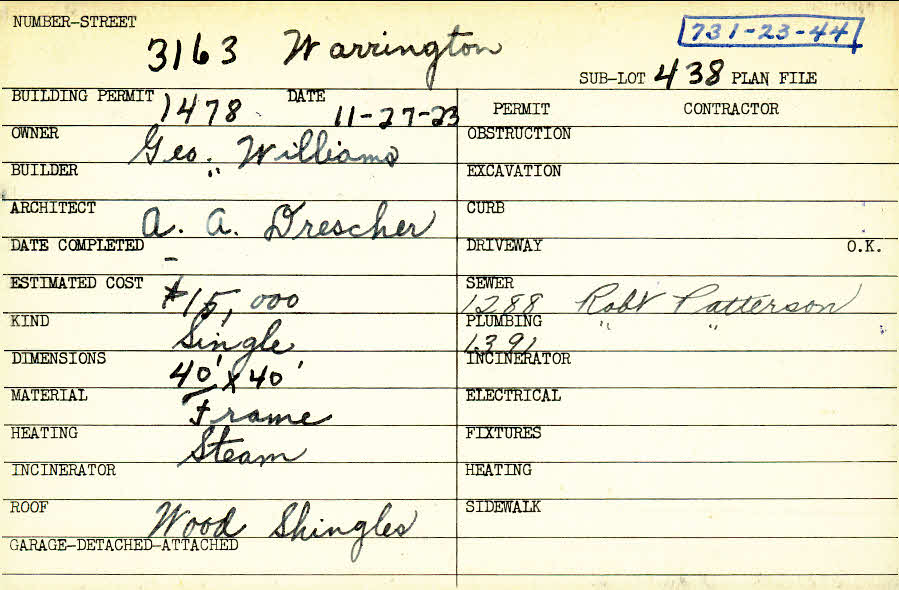 NUMBER-STREET
3163 Warrington
731-23-44
SUB-LOT 438 PLAN FILE
BUILDING PERMIT 1478 DATE 11-27-23
PERMIT CONTRACTOR
OWNER Geo. Williams
OBSTRUCTION
BUILDER "
EXCAVATION
ARCHITECT A. A. Drescher
CURB
DATE COMPLETED -
DRIVEWAY O.K.
ESTIMATED COST $15,000
SEWER 1288 Robt Patterson
KIND Single
PLUMBING 1391 " "
DIMENSIONS 40' x 40'
INCINERATOR
MATERIAL Frame
ELECTRICAL
HEATING Steam
FIXTURES
INCINERATOR
HEATING
ROOF Wood Shingles
SIDEWALK
GARAGE-DETACHED-ATTACHED